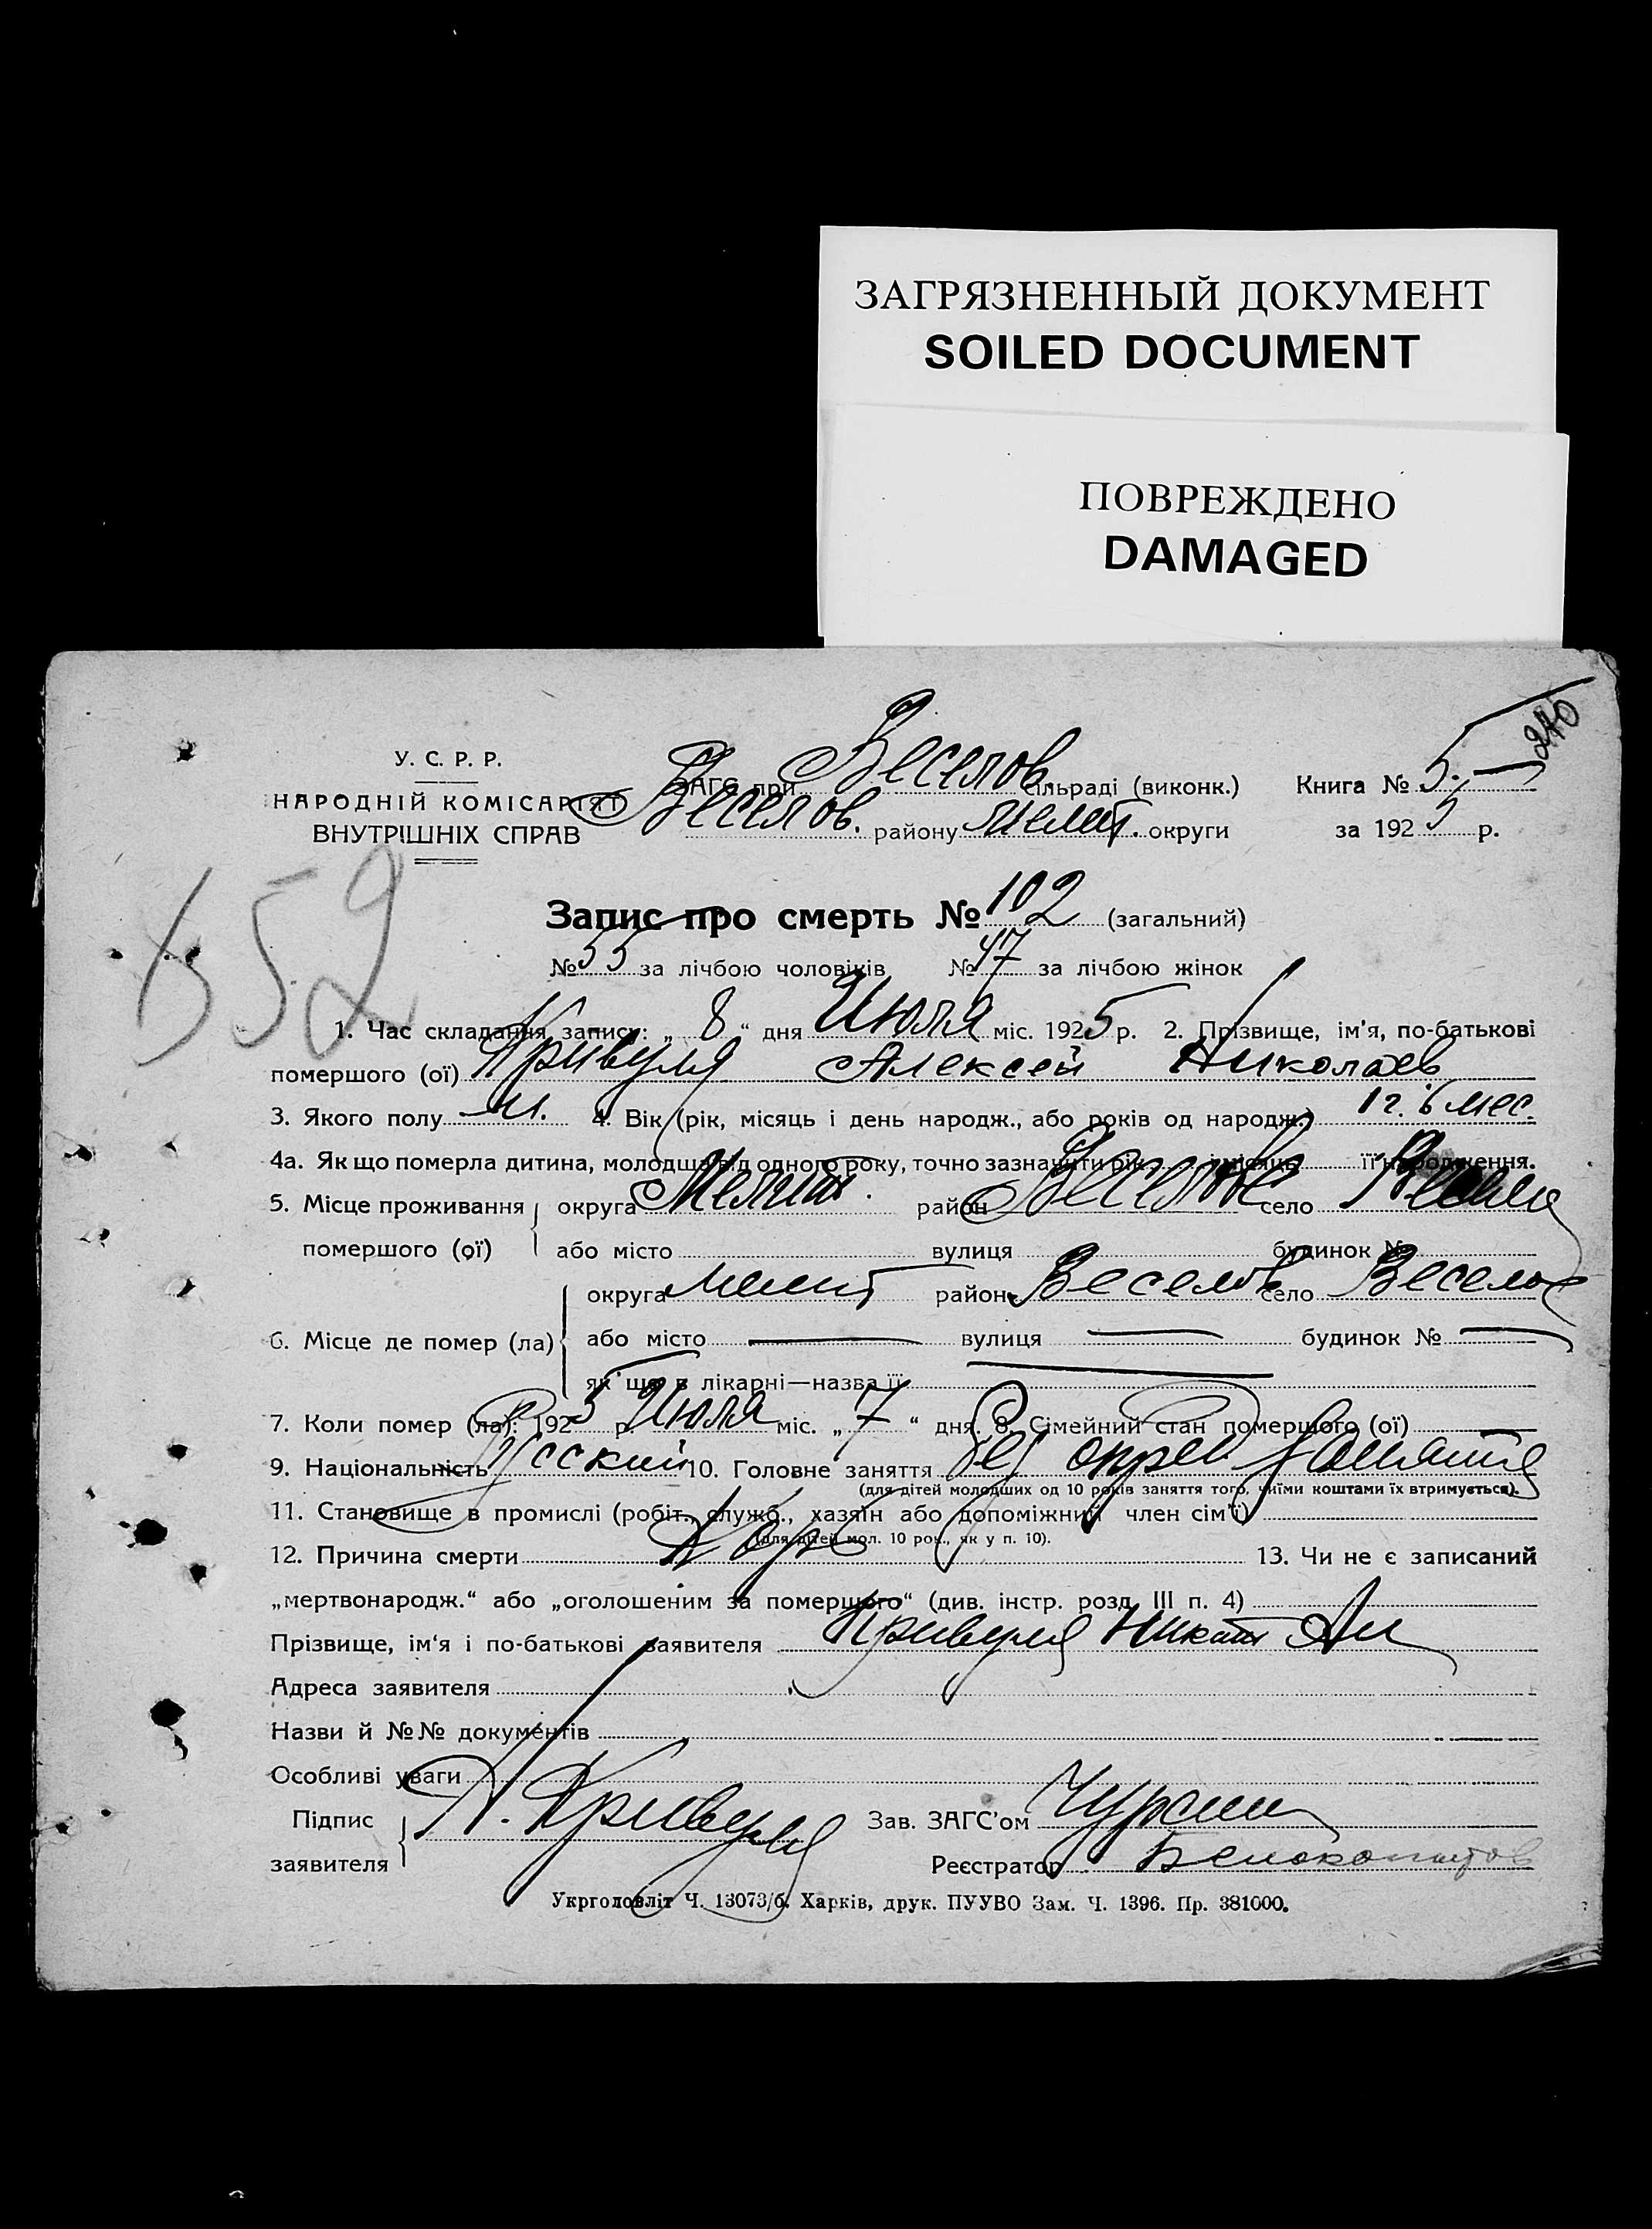 ЗАГРЯЗНЕННЫЙ ДОКУМЕНТ
SOILED DOCUMENT
ПОВРЕЖДЕНО
DAMAGED
У. С. Р. Р.
НАРОДНІЙ КОМІСАРІЯТ
ВНУТРІШНІХ СПРАВ
ЗАГС при Веселов сільраді (виконк.) Книга № 5.
Веселов. району Мелит. округи за 1925 р.
652
Запис про смерть № 102 (загальний)
№ 55 за лічбою чоловіків № 47 за лічбою жінок
1. Час складання запису: „ 8 “ дня Июля міс. 1925 р. 2. Прізвище, ім'я, по-батькові
помершого (ої) Кривуля Алексей Николаев
3. Якого полу м. 4. Вік (рік, місяць і день народж., або років од народж.) 1 г. 6 мес.
4а. Як що померла дитина, молодша від одного року, точно зазначити рік і місяць її народження.
5. Місце проживання округа Мелит. район Веселов село
помершого (ої) або місто вулиця будинок №
округа Мелит район Веселов село Веселое
6. Місце де помер (ла) або місто — вулиця — будинок № —
як що в лікарні—назва її —
7. Коли помер (ла): 1925 р. Июля міс. „ 7 “ дня. 8. Сімейний стан помершого (ої)
9. Національність Русский 10. Головне заняття Без опред. занятия
(для дітей молодших од 10 років заняття того, чиїми коштами їх втримується).
11. Становище в промислі (робіт., служб., хазяїн або допоміжний член сім'ї)
(для дітей мол. 10 рок., як у п. 10).
12. Причина смерти Корь 13. Чи не є записаний
„мертвонародж.“ або „оголошеним за помершого“ (див. інстр. розд. III п. 4)
Прізвище, ім'я і по-батькові заявителя Кривуля
Адреса заявителя
Назви й №№ документів
Особливі уваги
Підпис
заявителя Н. Кривуля
Зав. ЗАГС'ом Чурсин
Реєстратор Белокопытов
Укрголовліт Ч. 13073/б. Харків, друк. ПУУВО Зам. Ч. 1396. Пр. 381000.